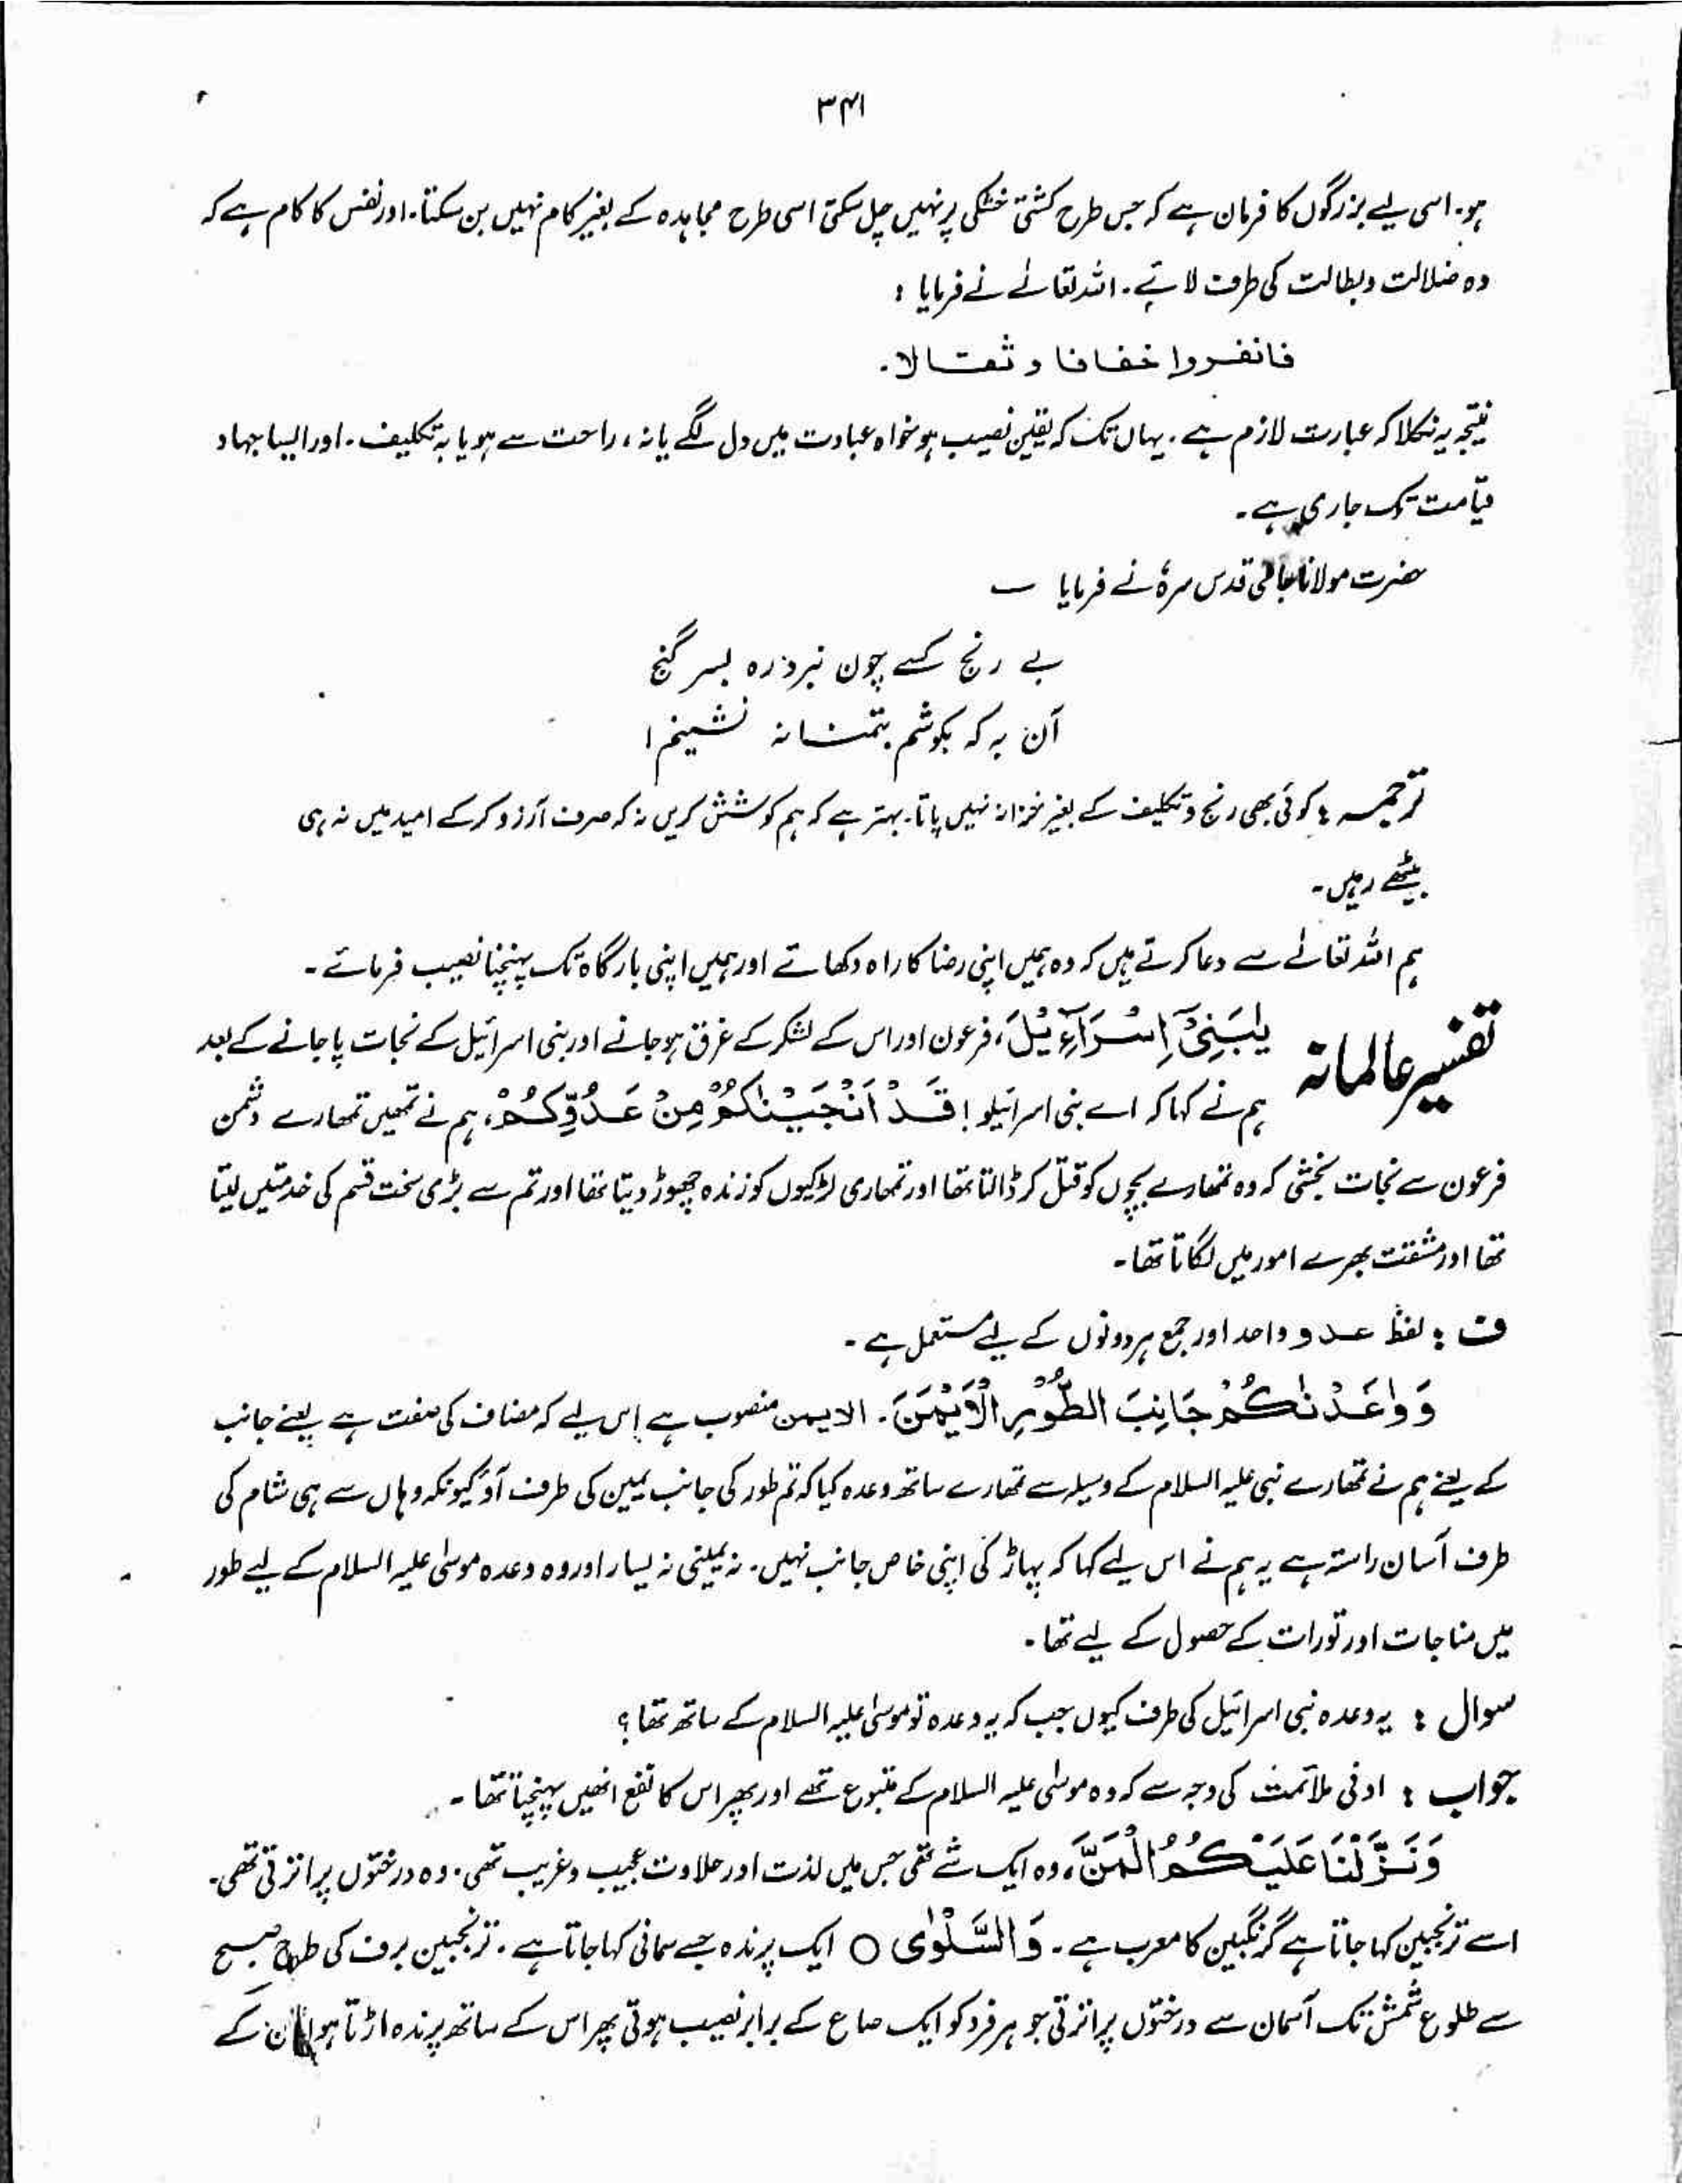 ۳۴۱
ہو۔ اسی لیے بزرگوں کا فرمان ہے کہ جس طرح کشتی خشکی پر نہیں چل سکتی اسی طرح مجاہدہ کے بغیر کام نہیں بن سکتا۔ اور نفس کا کام ہے کہ
وہ ضلالت و بطالت کی طرف لائے۔ اللہ تعالیٰ نے فرمایا :
فانفروا خفافا و ثقالا۔
نتیجہ یہ نکلا کہ عبارت لازم ہے۔ یہاں تک کہ یقین نصیب ہو خواہ عبادت میں دل لگے یا نہ، راحت سے ہو یا بہ تکلیف۔ اور ایسا جہاد
قیامت تک جاری ہے۔
حضرت مولانا جامی قدس سرہٗ نے فرمایا ؎
بے رنج کسے چون نبرد رہ بسر گنج
آن بہ کہ بکوشم بتمنا نہ نشینم !
ترجمہ : کوئی بھی رنج و تکلیف کے بغیر خزانہ نہیں پاتا۔ بہتر ہے کہ ہم کوشش کریں نہ کہ صرف آرزو کر کے امید میں نہ ہی
بیٹھے رہیں۔
ہم اللہ تعالیٰ سے دعا کرتے ہیں کہ وہ ہمیں اپنی رضا کا راہ دکھائے اور ہمیں اپنی بارگاہ تک پہنچنا نصیب فرمائے۔
تفسیر عالمانہ یٰبَنِیْۤ اِسْرَآءِیْلَ، فرعون اور اس کے لشکر کے غرق ہو جانے اور بنی اسرائیل کے نجات پا جانے کے بعد
ہم نے کہا کہ اے بنی اسرائیلو ! قَدْ اَنْجَیْنٰکُمْ مِنْ عَدُوِّکُمْ، ہم نے تمھیں تمھارے دشمن
فرعون سے نجات بخشی کہ وہ تمھارے بچوں کو قتل کر ڈالتا تھا اور تمھاری لڑکیوں کو زندہ چھوڑ دیتا تھا اور تم سے بڑی سخت قسم کی خدمتیں لیتا
تھا اور مشقت بھرے امور میں لگاتا تھا۔
ف : لفظ عدو واحد اور جمع ہر دونوں کے لیے مستعمل ہے۔
وَوٰعَدْنٰکُمْ جَانِبَ الطُّوْرِ الْاَیْمَنَ۔ الایمن منصوب ہے اس لیے کہ مضاف کی صفت ہے یعنے جانب
کے یعنے ہم نے تمھارے نبی علیہ السلام کے وسیلہ سے تمھارے ساتھ وعدہ کیا کہ تم طور کی جانب یمین کی طرف آؤ کیونکہ وہاں سے ہی شام کی
طرف آسان راستہ ہے یہ ہم نے اس لیے کہا کہ پہاڑ کی اپنی خاص جانب نہیں۔ نہ یمینی نہ یسار اور وہ وعدہ موسیٰ علیہ السلام کے لیے طور
میں مناجات اور تورات کے حصول کے لیے تھا۔
سوال : یہ وعدہ بنی اسرائیل کی طرف کیوں جب کہ یہ وعدہ تو موسیٰ علیہ السلام کے ساتھ تھا ؟
جواب : ادنی ملائمت کی وجہ سے کہ وہ موسیٰ علیہ السلام کے متبوع تھے اور پھر اس کا نفع انھیں پہنچتا تھا۔
وَنَزَّلْنَا عَلَیْکُمُ الْمَنَّ، وہ ایک شے تھی جس میں لذت اور حلاوت عجیب و غریب تھی۔ وہ درختوں پر اترتی تھی۔
اسے ترنجبین کہا جاتا ہے گزنگبین کا معرب ہے۔ وَالسَّلْوٰی ○ ایک پرندہ جسے سمانی کہا جاتا ہے۔ ترنجبین برف کی طرح صبح
سے طلوع شمش تک آسمان سے درختوں پر اترتی جو ہر فرد کو ایک صاع کے برابر نصیب ہوتی پھر اس کے ساتھ پرندہ اڑتا ہوا ان کے